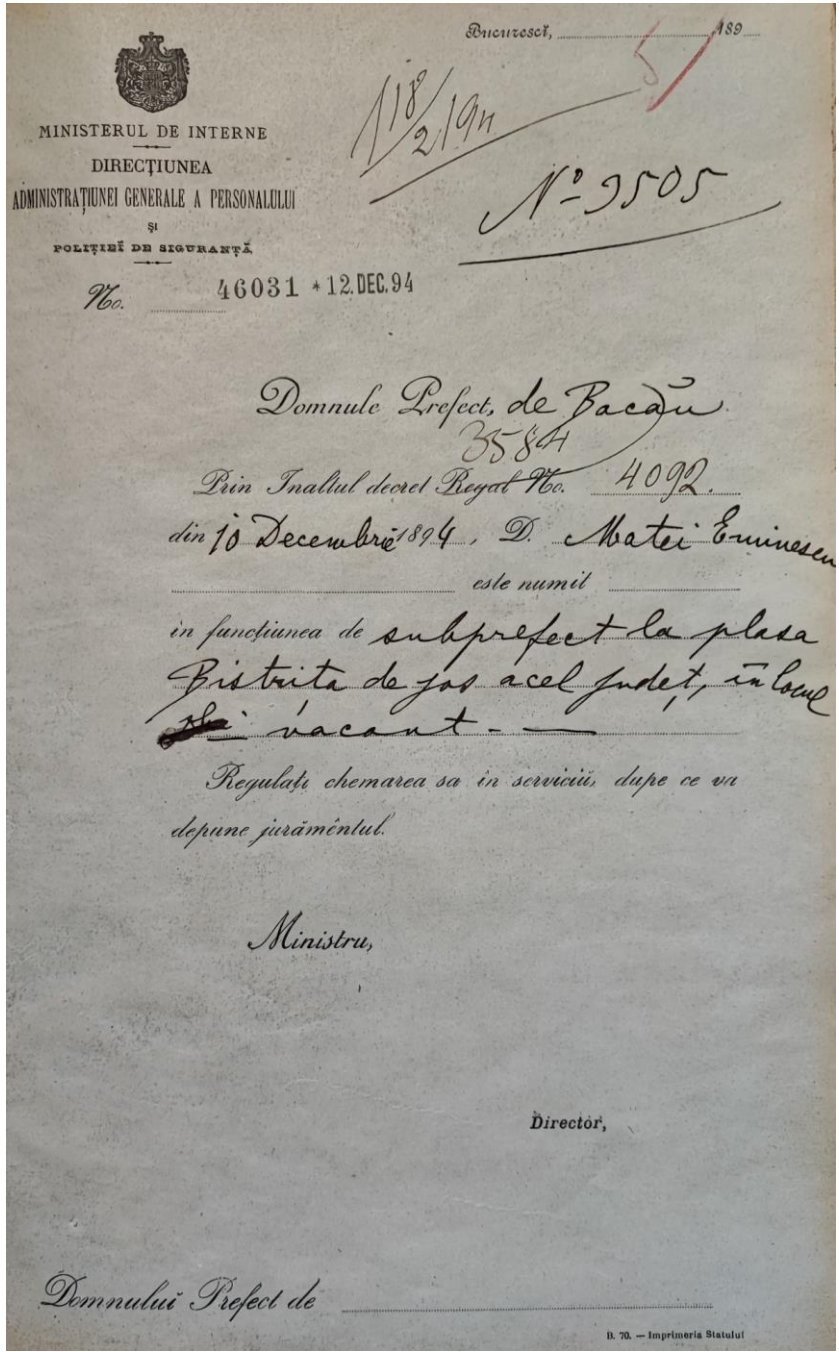 Bucurescĭ, 189
5
118/2194
MINISTERUL DE INTERNE
DIRECȚIUNEA
ADMINISTRAȚIUNEI GENERALE A PERSONALULUI
ȘI
POLIȚIEĬ DE SIGURANȚĂ
No. 46031 * 12. DEC. 94
No 9505
Domnule Prefect, de Bacău
3584
Prin Inaltul decret Regal No. 4092.
din 10 Decembrie 1894, D. Matei Eminescu
este numit
in funcțiunea de subprefect la plasa
Bistrita de jos acel județ, in locul
vacant. —
Regulați chemarea sa in serviciŭ, dupe ce va
depune jurămêntul.
Ministru,
Director,
Domnuluĭ Prefect de
B. 70. — Imprimeria Statului